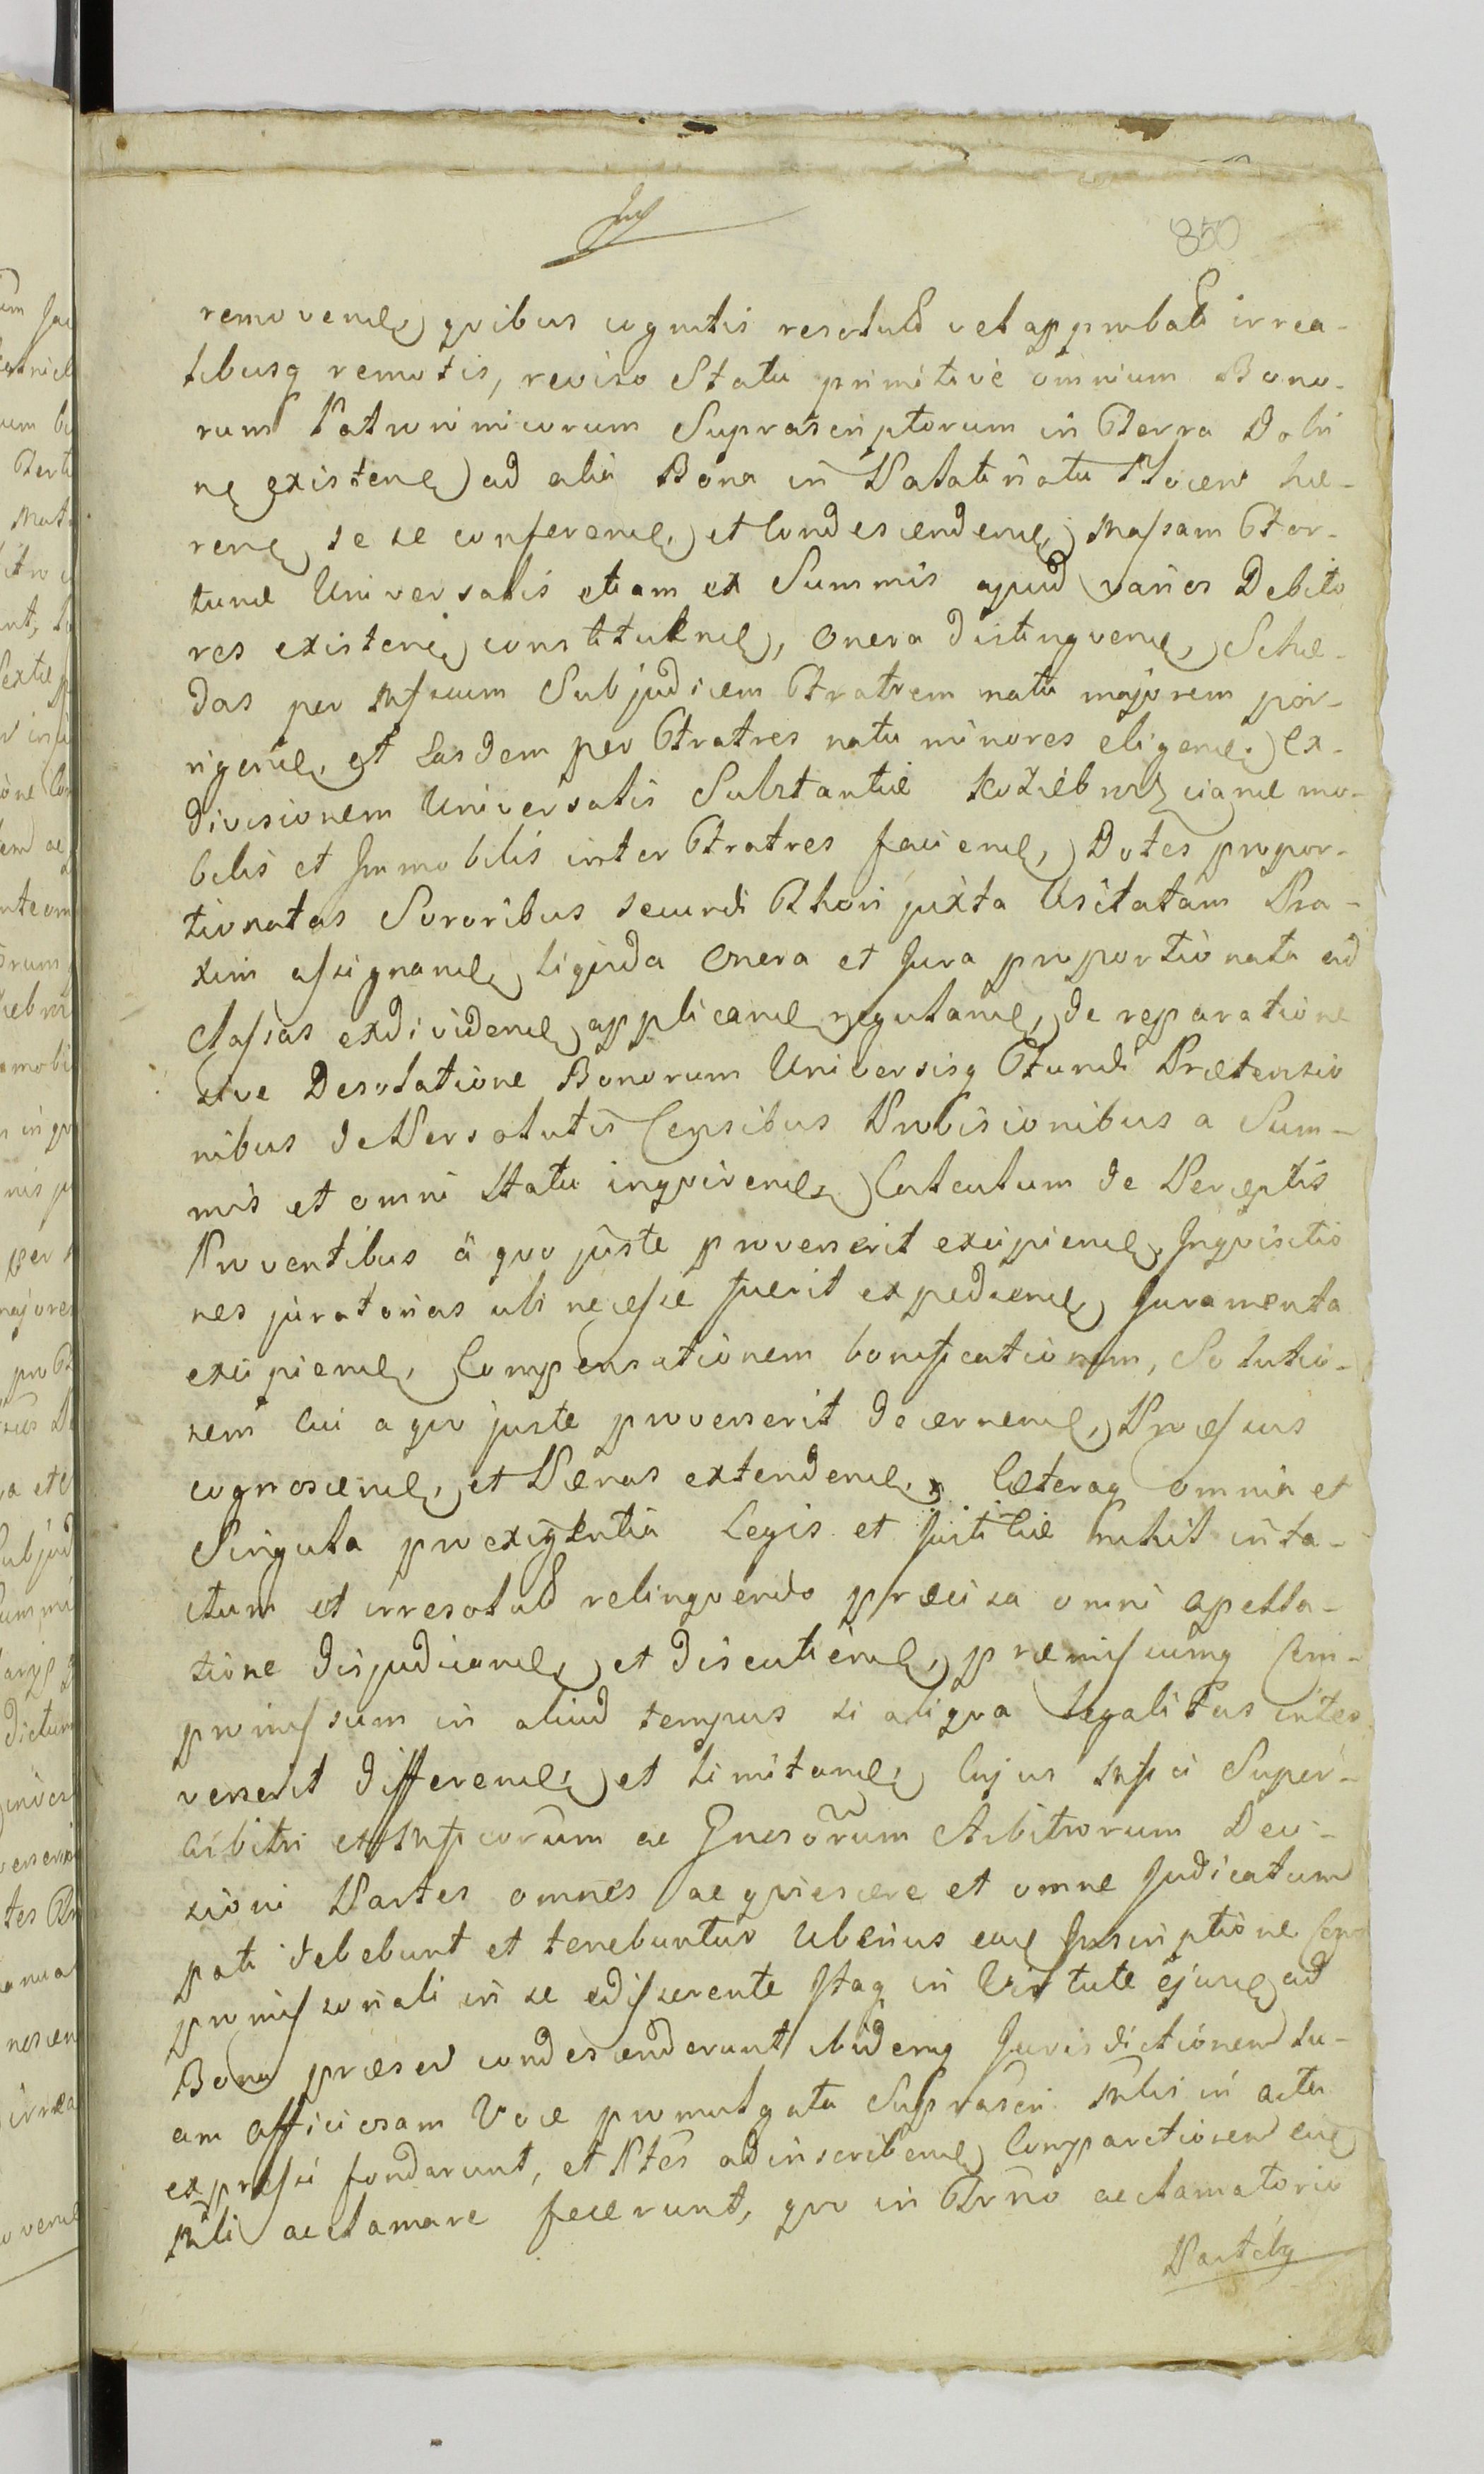 850
removend, qvibus cognitis resolutis vel approbatis irrea-
tibusq remotis, reviso Statu primitivé omnium Bono-
rum Patronimicorum Suprascriptorum in Terra Dobri
n existen ad alia Bona in Palatinatu Plocen hæ-
ren se se conferend, et Condescendend, Massam For-
tunæ Universalis etiam ex Summis apud varios Debito
res existen constituend, Onera distingvend, Sche-
das per Mfcum Subjudicem Fratrem natu majorem por-
rigend, et Easdem per Fratres natu minores eligend, Ex-
divisionem Universalis Substantiæ Koziebrodzcianæ mo-
bilis et Immobilis inter Fratres faciend, Dotes propor-
tionatas Sororibus secundi Thori juxta Usitatam Pra-
xim assignand, Liqvida Onera et Jura proportionata ad
Classas exdividend applicand reguland, de reparatione
sive Desolatione Bonorum Universisq Fundi Prætensio
nibus de Persolutis Censibus Provisionibus a Sum-
mis et omni Statu inqvirend, Calculum de Perceptis
Proventibus á qvo juste provenerit excipiend, Inqvisitio
nes juratorias ubi necesse fuerit expediend, Juramenta
excipiend, Compensationem bonificationem, Solutio-
nem Cui a qvo juste provenerit decernend, Processus
cognoscend, et Pænas extendend, Cæteraq omnia et
Singula pro exigentia Legis et Justitiæ nihil inta-
ctum et irresolutum relinqvendo præcisa omni apella-
tione dijudicand, et discutiend, præmissumq Com-
promissum in aliud tempus si aliqva Legalitas inter
venerit differend, et Limitand, Cujus Mfci Super-
arbitri et Mfcorum ac Gnesorum Arbitrorum Deci-
sioni Partes omnes acqviescere et omne Judicatum
pati debebunt et tenebuntur Uberius ead Inscriptione Com
promissoriali in se edisserente Itaq in Virtute ejusd ad
Bona præsen condescenderunt ibidemq Jurisdictionem Su-
am Officiosam Voce promulgata Suprascri Mlis in actu
expressi fondarunt, et Ptes ad inscribend Comparitionem ead
Mli acclamare fecerunt, qvo in Trno acclamatorio
Partibq